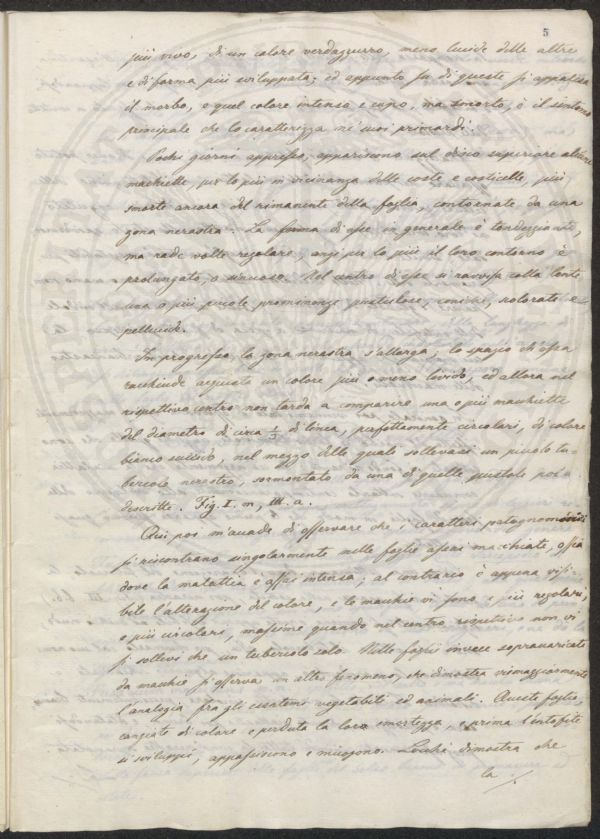 5
più vivo, di un colore verdazzurro, meno lucide delle altre
e di forma più sviluppata; ed appunto su di queste si appalesa
il morbo, e quel colore intenso e cupo, ma smorto, è il sintomo
principale che lo caratterizza ne' suoi primordi.
Pochi giorni appresso, appariscono sul disco superiore alcune
machiette, per lo più in vicinanza delle coste e costicelle, più
smorte ancora del rimanente della foglia, contornate da una
zona nerastra. La forma di esse in generale è tondeggiante,
ma rade volte regolare, anzi per lo più il loro contorno è
prolungato, o sinuoso. Nel centro di esse si ravvisa colla lente
una o più piccole prominenze pustulose, coniche, scolorate e
pellucide.
In progresso, la zona nerastra s'allarga, lo spazio ch'essa
racchiude acquista un colore più o meno livido, ed allora nel
rispettivo centro non tarda a comparire una o più machiette
del diametro di circa 1/3 di linea, perfettamente circolari, di colore
bianco succido, nel mezzo delle quali sollevasi un piccolo tu-
bercolo nerastro, sormontato da una di quelle pustole
descritte. Fig. I. m, III. a.
Qui poi m'accade di osservare che i caratteri patognomonici
si riscontrano singolarmente nelle foglie assai machiate, ossia
dove la malattia è assai intensa; al contrario è appena visi-
bile l'alterazione del colore, e le macchie vi sono e più regolari,
e più circolari, massime quando nel centro rispettivo non vi
si sollevi che un tubercolo solo. Nelle foglie invece sopracaricate
da macchie si osserva un altro fenomeno, che dimostra vimaggiormente
l'analogia fra gli esantemi vegetabili ed animali. Queste foglie,
cangiate di colore, e perduta la loro smortezza, e prima l'entofite
si sviluppi, appassiscono e muojono. Lochi dimostra che
la